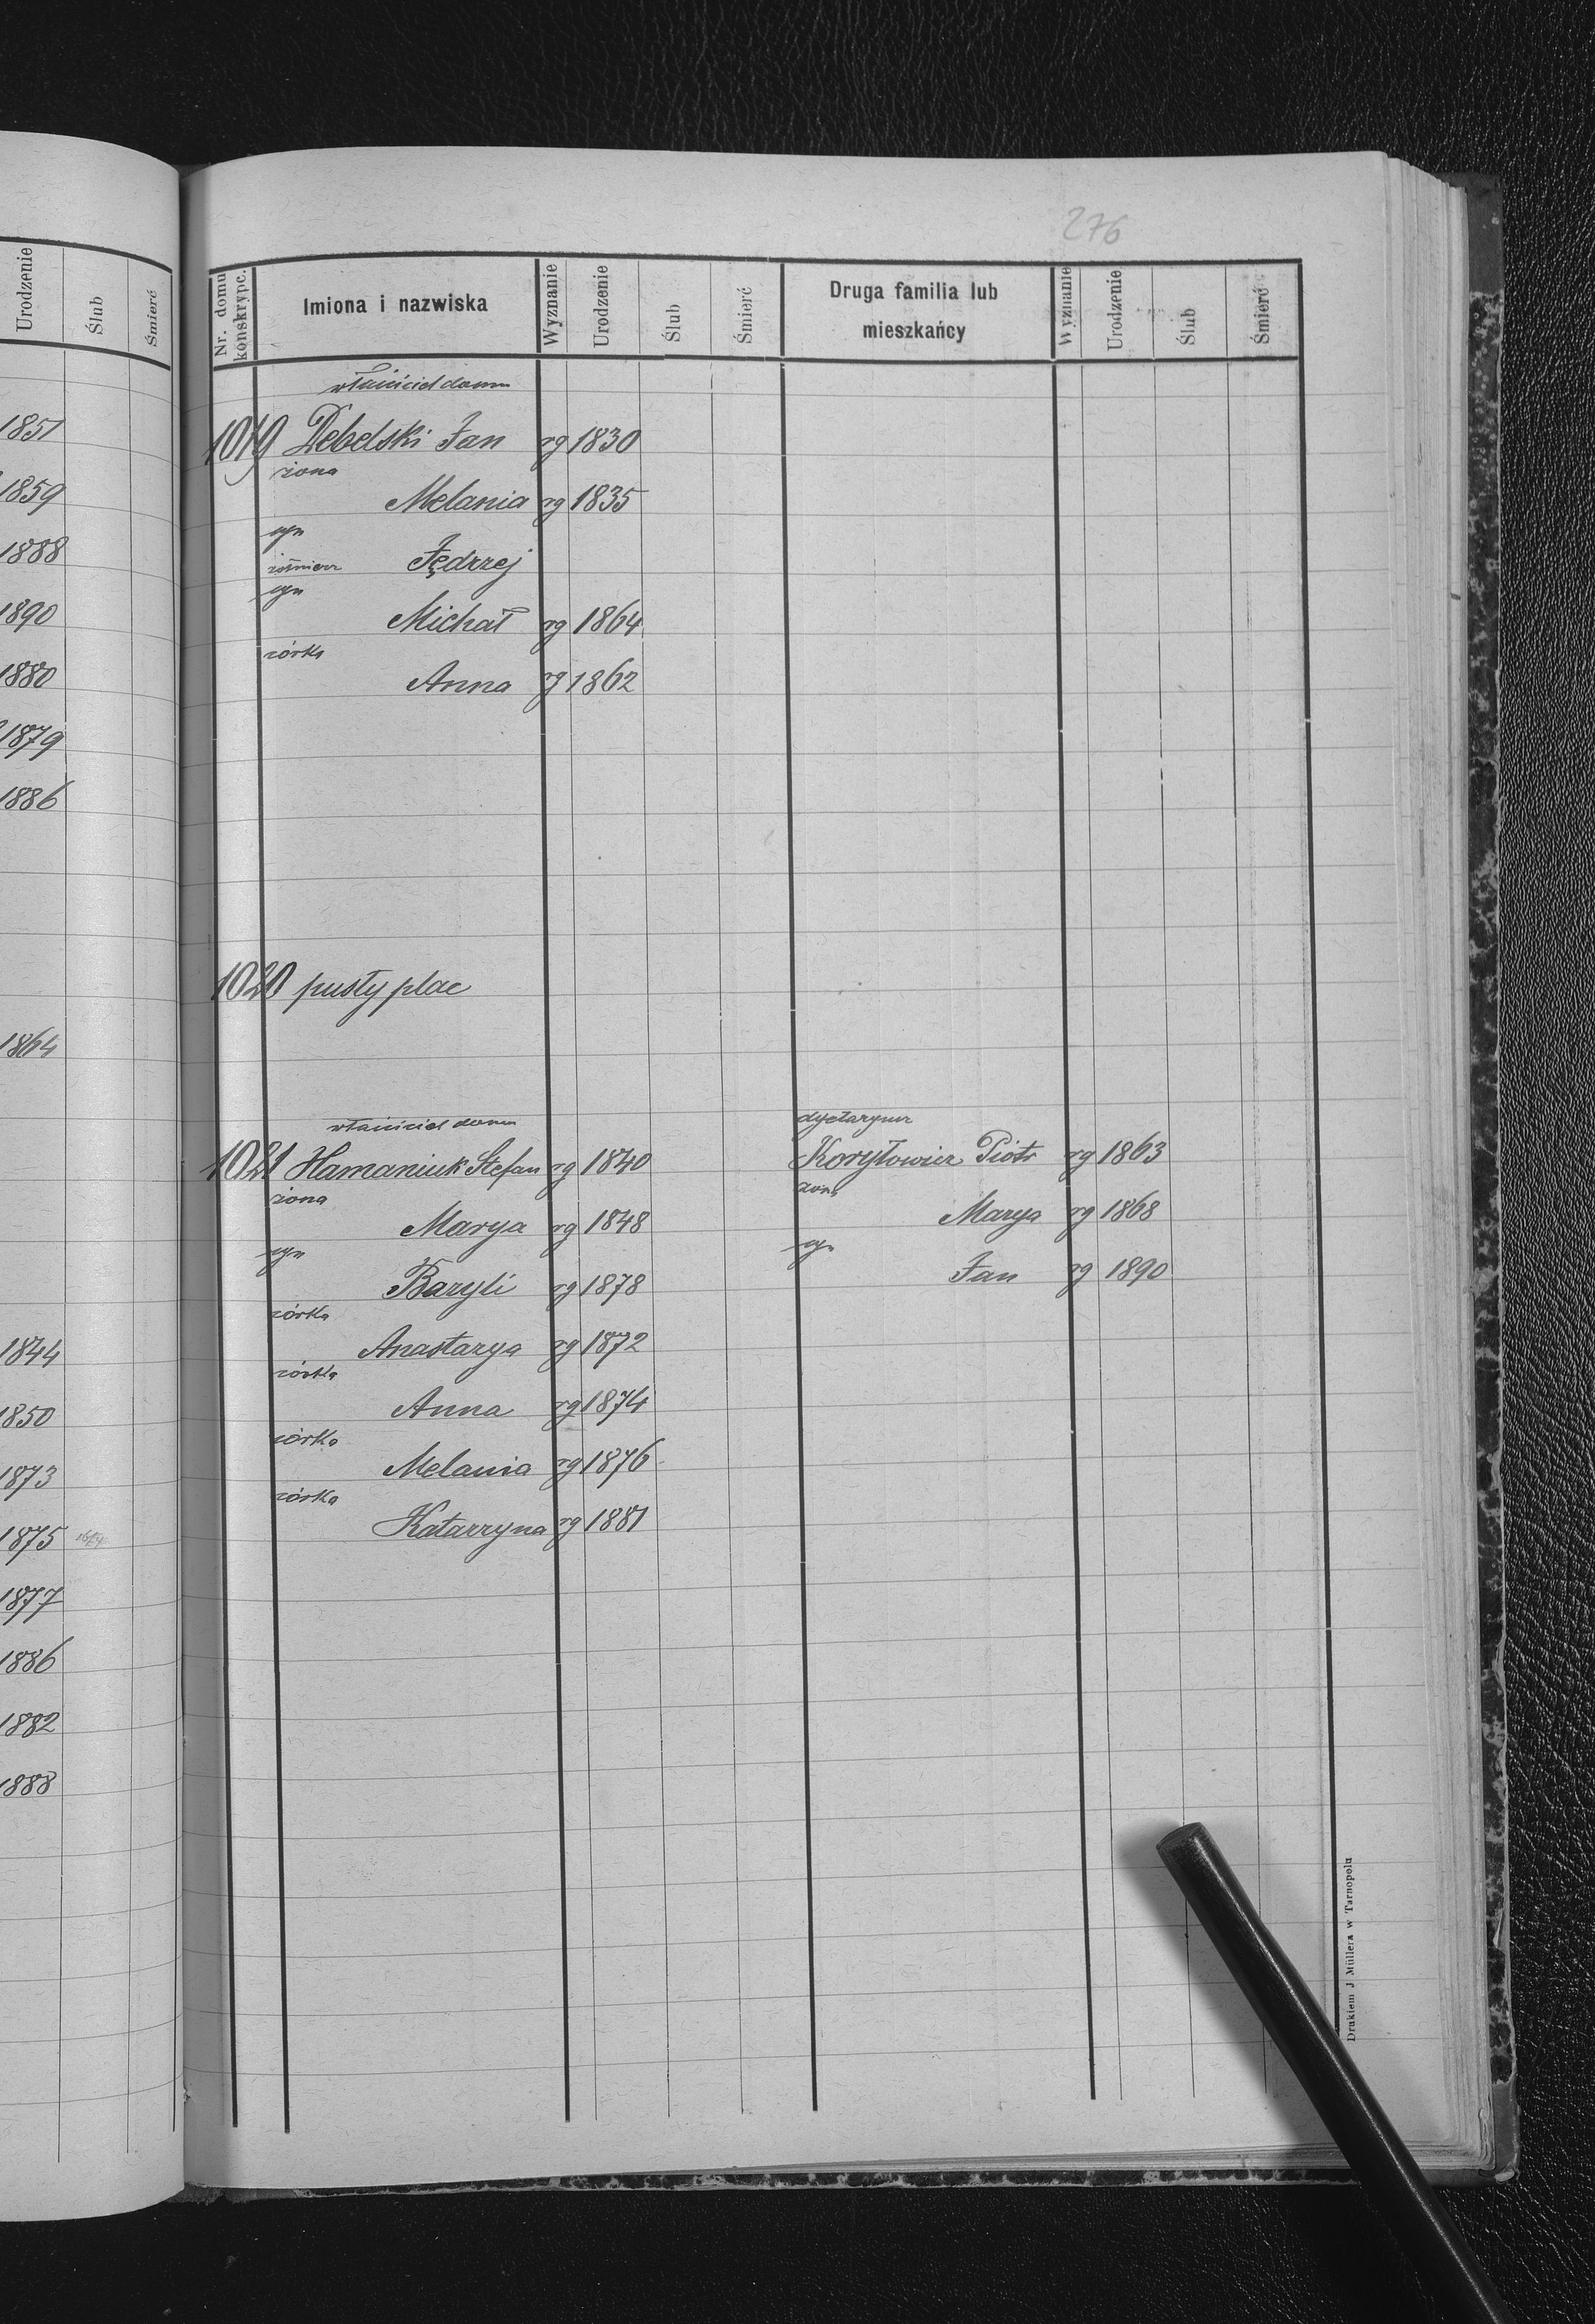 276
Urodzenie Ślub Śmierć
Nr. domu konskrypc. Imiona i nazwiska Wyznanie Urodzenie Ślub Śmierć Druga familia lub mieszkańcy Wyznanie Urodzenie Ślub Śmierć
właściciel domu
1851
1019 Debelski Jan rg 1830
żona
1859
Melania rg 1835
syn
1888
żołnierz Jędrzej
syn
1890
Michał rg 1864
córka
1880
Anna rg 1862
1879
1886
1020 pusty plac
1864
właściciel domu dyetaryusz
1021 Hamaniuk Stefan rg 1840 Koryłowicz Piotr rg 1863
żona żona
Marya rg 1848 Marya rg 1868
syn syn
Bazyli rg 1878 Jan rg 1890
córka
1844
Anastazya rg 1872
córka
1850
Anna rg 1874
córka
1873
Melania rg 1876
córka
1875
Katarzyna rg 1881
1877
1886
1882
1888
Drukiem J. Müllera w Tarnopolu